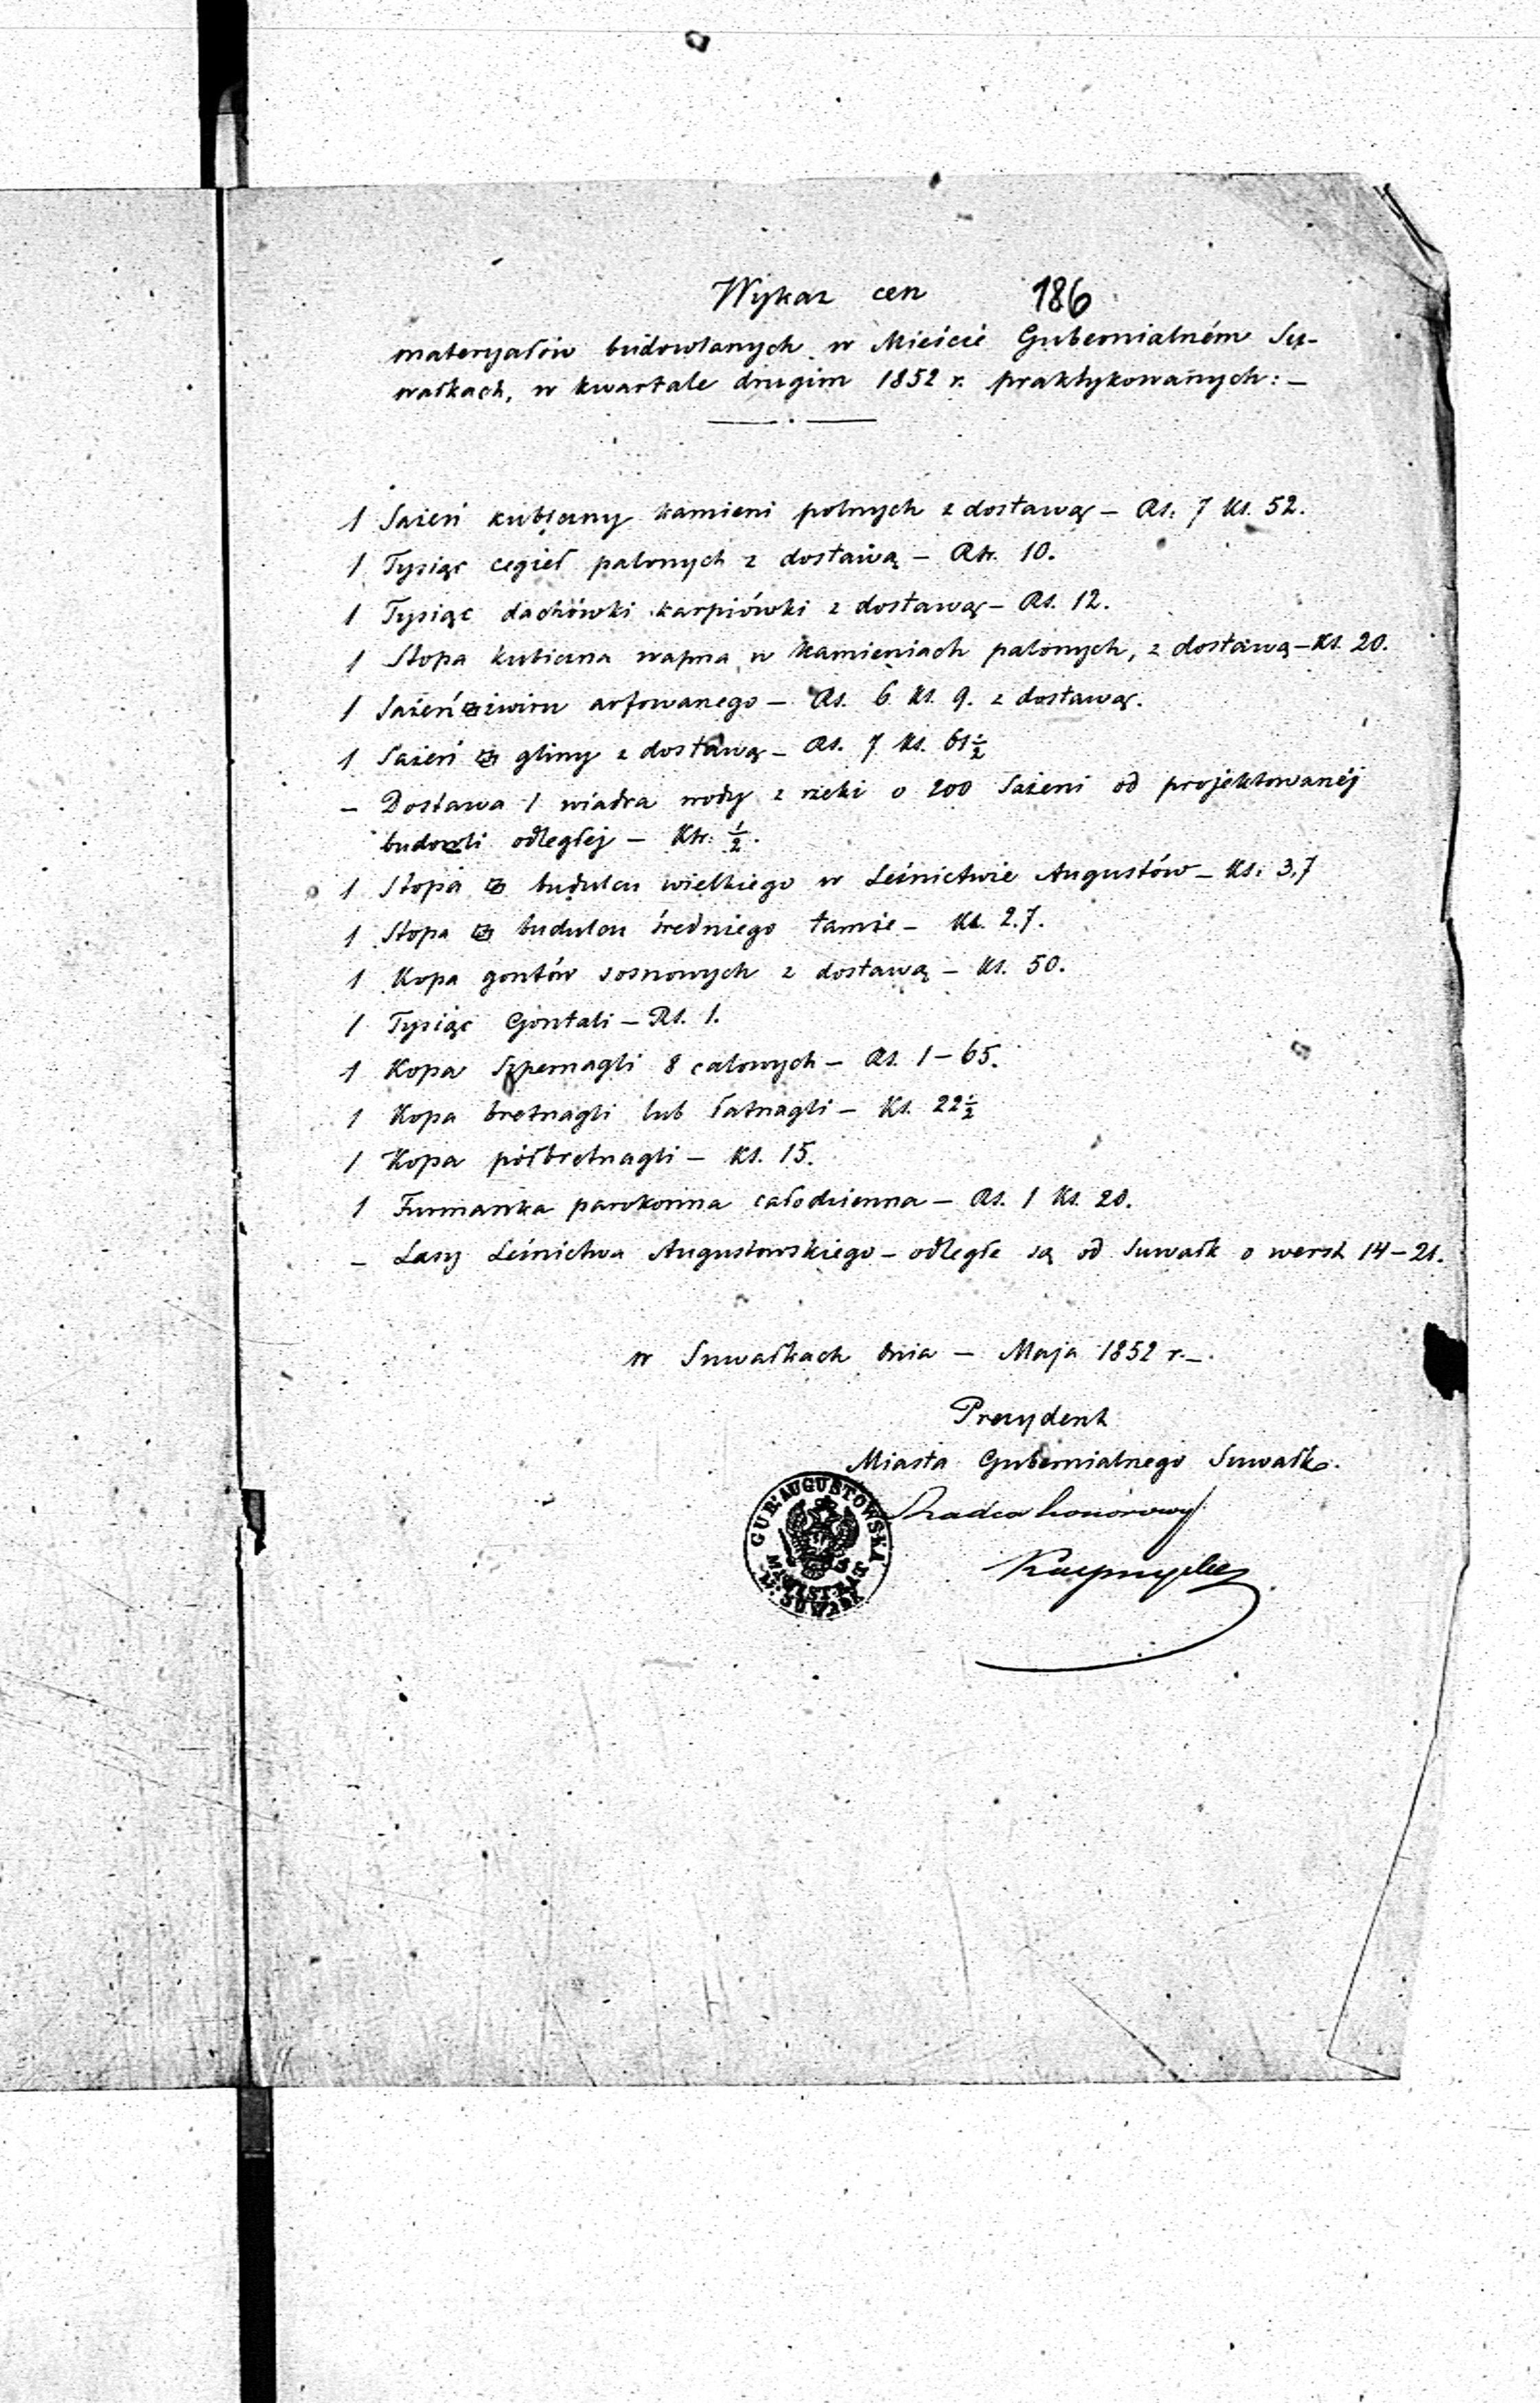 Wykaz cen 186
materyałów budowlanych w Mieście Gubernialném Su-
wałkach, w kwartale drugim 1852 r. praktykowanych: —
1 Sażeń kubiczny kamieni polnych z dostawą — Rs. 7 Ks. 52.
1 Tysiąc cegieł palonych z dostawą — Rs. 10.
1 Tysiąc dachówki karpiówki z dostawą — Rs. 12.
1 Stopa kubiczna wapna w kamieniach palonych, z dostawą — Ks. 20.
1 Sażeń żwiru arfowanego — Rs. 6 Ks. 9. z dostawą.
1 Sażeń gliny z dostawą — Rs. 7 Ks. 61½
— Dostawa 1 wiadra wody z rzeki o 200 Sażeni od projektowanéj
budowli odległej — Ks. ½.
1 Stopa budulcu wielkiego w Leśnictwie Augustów — Ks. 3,7
1 Stopa budulcu średniego tamże — Ks. 2.7.
1 Kopa gontów sosnowych z dostawą — Ks. 50.
1 Tysiąc Gontali — Rs. 1.
1 Kopa Szpernagli 8 calowych — Rs. 1 — 65.
1 Kopa bretnagli lub łatnagli — Ks. 22½
1 Kopa półbretnagli — Ks. 15.
1 Furmanka parokonna całodzienna — Rs. 1 Ks. 20.
— Lasy Leśnictwa Augustowskiego — odległe są od Suwałk o werst 14 — 21.
w Suwałkach dnia — Maja 1852 r. —
Prezydent
Miasta Gubernialnego Suwałk.
Radca honorowy
GUB: AUGUSTOWSKA
MAGISTRAT
M. SUWAŁK